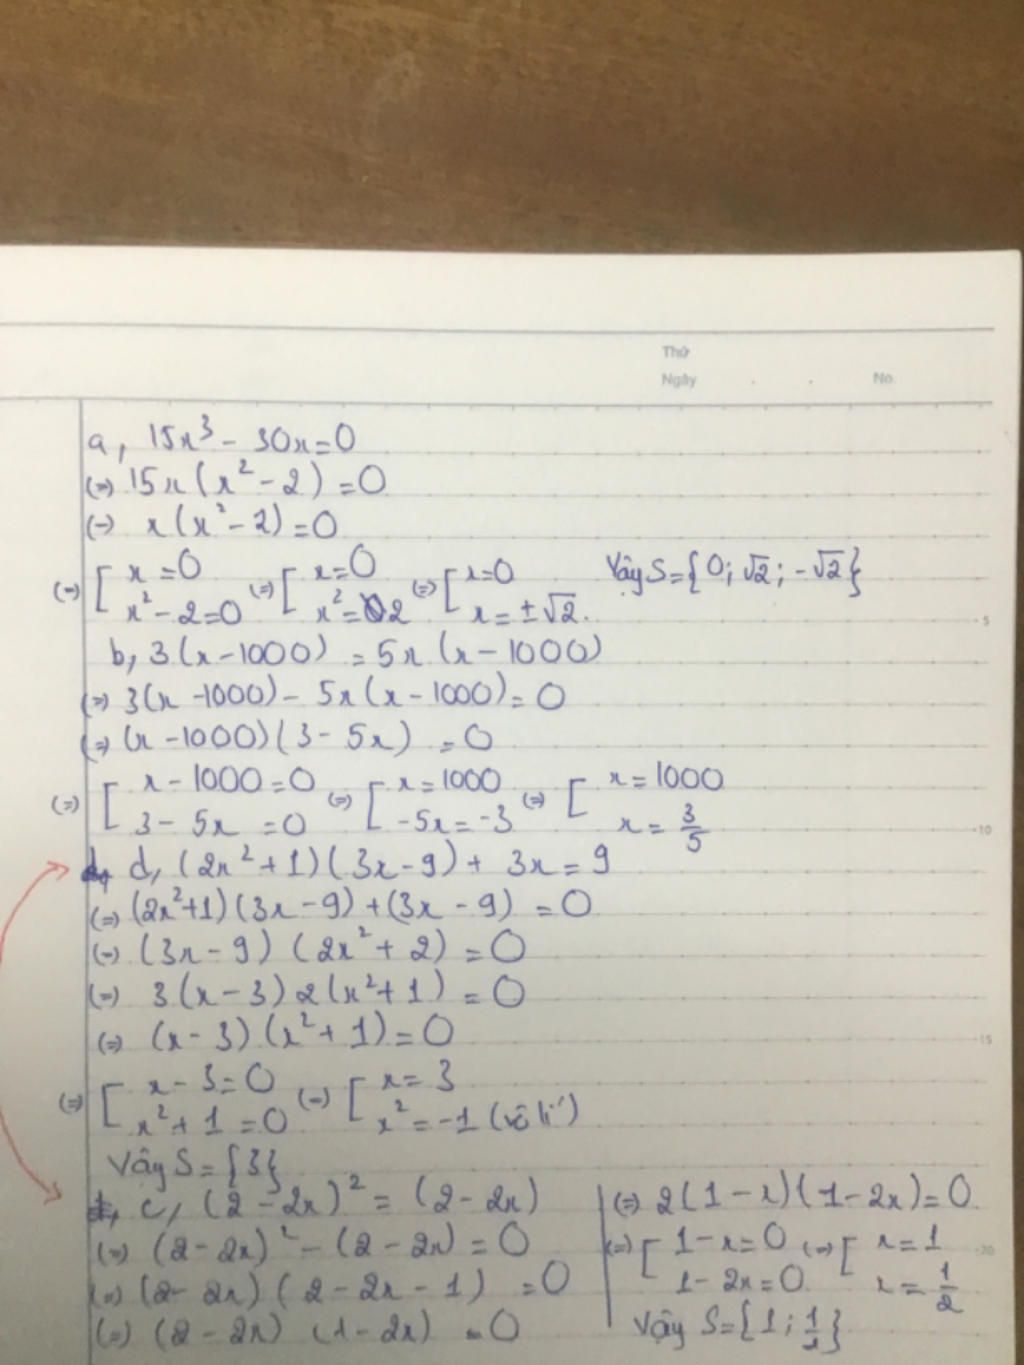 Thứ
Ngày . . No
a, 15x³ - 30x = 0
(=) 15x(x² - 2) = 0
(=) x(x² - 2) = 0
(=) [ x = 0 (=) [ x = 0 (=) [ x = 0 Vậy S = {0; √2; -√2}
x² - 2 = 0 x² = 2 x = ±√2.
5
b, 3(x - 1000) = 5x(x - 1000)
(=) 3(x - 1000) - 5x(x - 1000) = 0
(=) (x - 1000)(3 - 5x) = 0
(=) [ x - 1000 = 0 (=) [ x = 1000 (=) [ x = 1000
3 - 5x = 0 -5x = -3 x = 3/5
10
d, (2x² + 1)(3x - 9) + 3x = 9
(=) (2x² + 1)(3x - 9) + (3x - 9) = 0
(=) (3x - 9)(2x² + 2) = 0
(=) 3(x - 3)2(x² + 1) = 0
(=) (x - 3)(x² + 1) = 0
15
(=) [ x - 3 = 0 (=) [ x = 3
x² + 1 = 0 x² = -1 (vô lí)
Vậy S = {3}
c, (2 - 2x)² = (2 - 2x)
(=) (2 - 2x)² - (2 - 2x) = 0
(=) (2 - 2x)(2 - 2x - 1) = 0
(=) (2 - 2x)(1 - 2x) = 0
(=) 2(1 - x)(1 - 2x) = 0
(=) [ 1 - x = 0 (=) [ x = 1
1 - 2x = 0 x = 1/2
20
Vậy S = {1; 1/2}